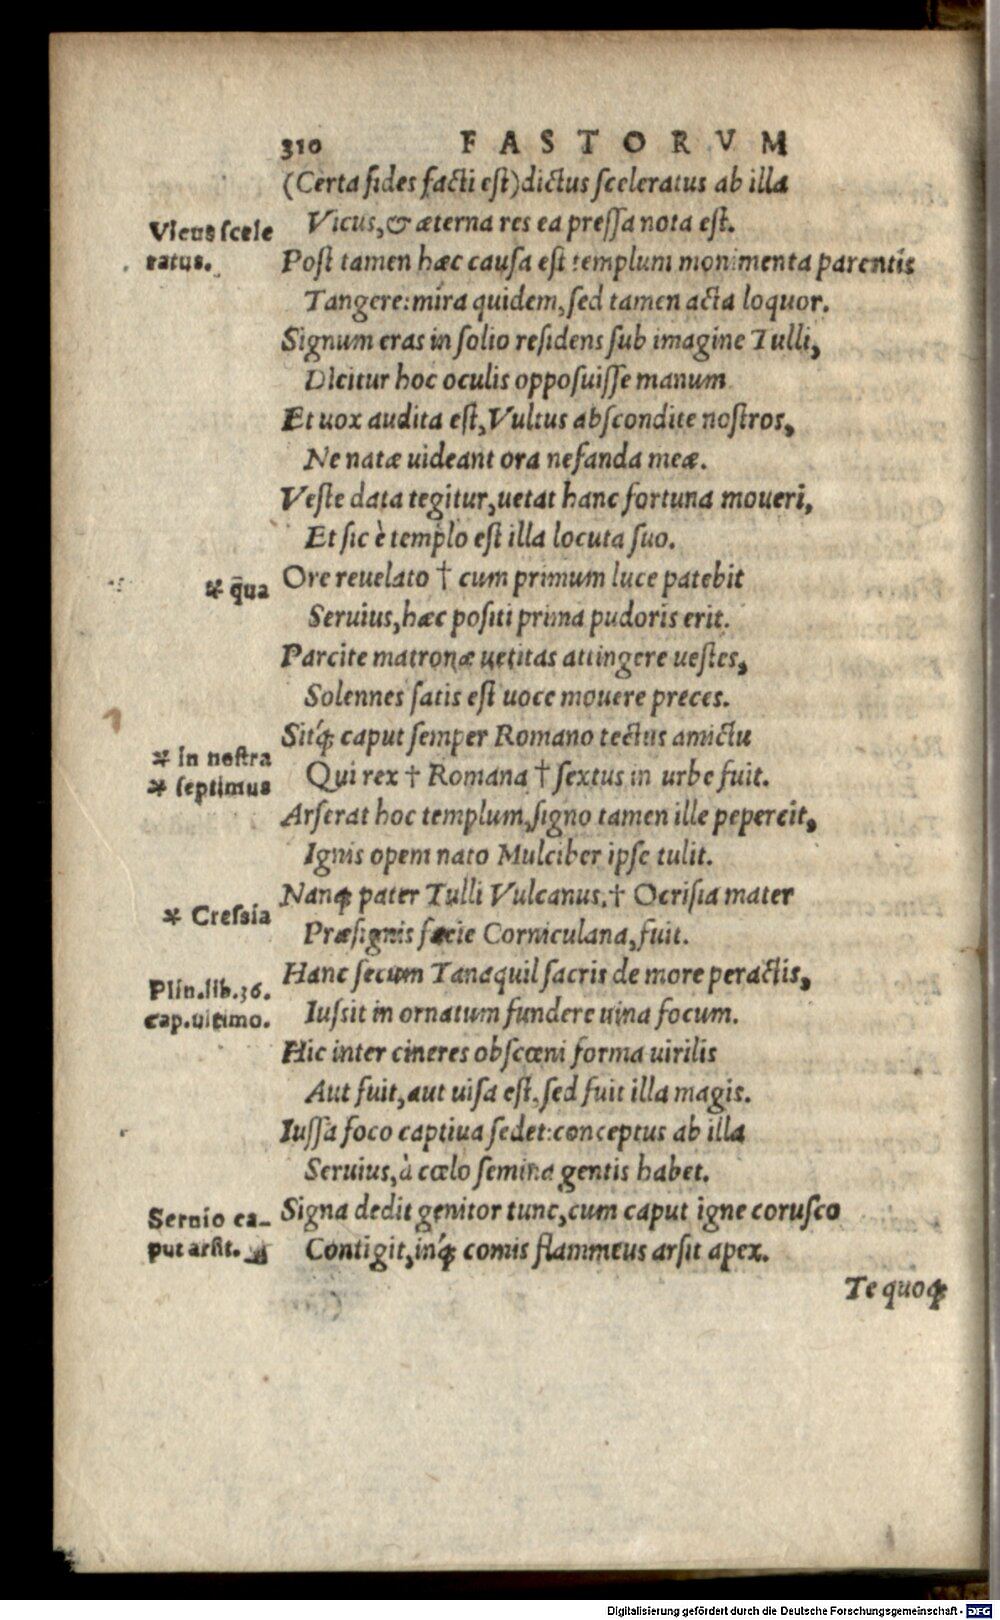 310 FASTORVM
(Certa fides facti est) dictus sceleratus ab illa
Vicus, & æterna res ea pressa nota est.
Vicus scele
ratus.
Post tamen hæc causa est templum monimenta parentis
Tangere: mira quidem, sed tamen acta loquor.
Signum eras in solio residens sub imagine Tulli,
Dicitur hoc oculis opposuisse manum
Et uox audita est, Vultus abscondite nostros,
Ne natæ uideant ora nefanda meæ.
Veste data tegitur, uetat hanc fortuna moueri,
Et sic è templo est illa locuta suo.
Ore reuelato † cum primum luce patebit
* q̄ua
Seruius, hæc positi prima pudoris erit.
Parcite matronæ uetitas attingere uestes,
Solennes satis est uoce mouere preces.
Sitq́; caput semper Romano tectus amictu
Qui rex † Romana † sextus in urbe fuit.
* in nostra
* septimus
Arserat hoc templum, signo tamen ille pepercit,
Ignis opem nato Mulciber ipse tulit.
Nanq; pater Tulli Vulcanus, † Ocrisia mater
* Cressia
Præsignis facie Corniculana, fuit.
Hanc secum Tanaquil sacris de more peractis,
Plin. lib. 36.
cap. ultimo.
Iussit in ornatum fundere uina focum.
Hic inter cineres obscœni forma uirilis
Aut fuit, aut uisa est, sed fuit illa magis.
Iussa foco captiua sedet: conceptus ab illa
Seruius, à cœlo semina gentis habet.
Signa dedit genitor tunc, cum caput igne corusco
Seruio ca-
put arsit.
Contigit, inq́; comis flammeus arsit apex.
Te quoq;
Digitalisierung gefördert durch die Deutsche Forschungsgemeinschaft - DFG